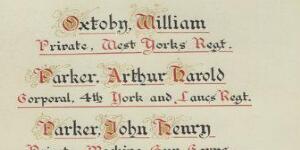 Oxtoby, William
Private, West Yorks Regt.
Parker, Arthur Harold
Corporal, 4th York and Lancs Regt.
Parker, John Henry
Private, Machine Gun Corps